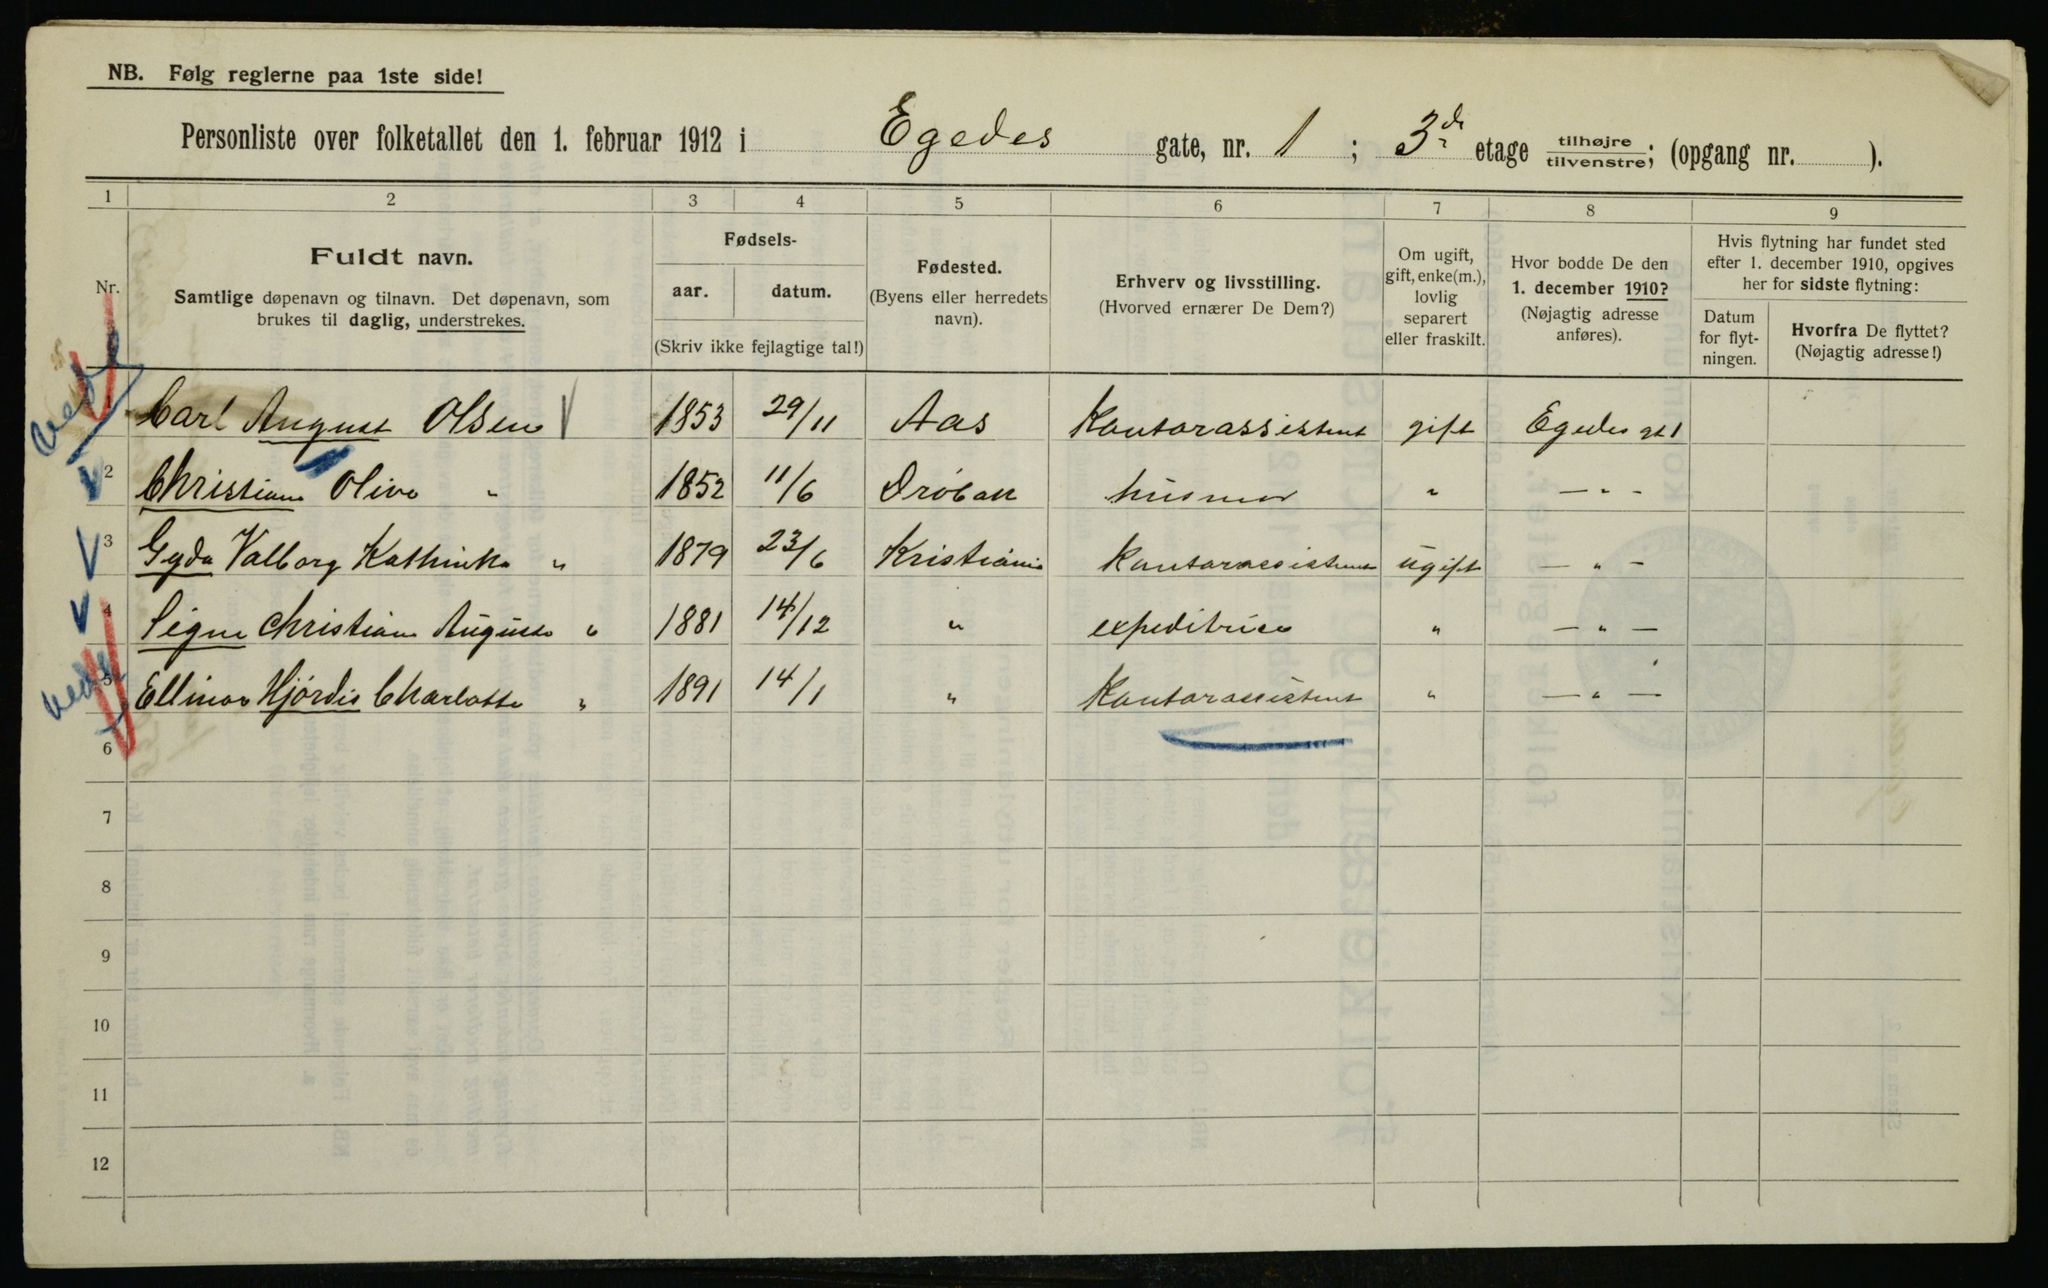 NB. Følg reglerne paa 1ste side!
Personliste over folketallet den 1. februar 1912 i Egedes gate, nr. 1; 3de etage tilhøjre/tilvenstre; (opgang nr. ).
1 2 3 4 5 6 7 8 9
Nr.
Fuldt navn.
Samtlige døpenavn og tilnavn. Det døpenavn, som
brukes til daglig, understrekes.
Fødsels-
aar. datum.
(Skriv ikke fejlagtige tal!)
Fødested.
(Byens eller herredets
navn).
Erhverv og livsstilling.
(Hvorved ernærer De Dem?)
Om ugift,
gift, enke(m.),
lovlig
separert
eller fraskilt.
Hvor bodde De den
1. december 1910?
(Nøjagtig adresse
anføres).
Hvis flytning har fundet sted
efter 1. december 1910, opgives
her for sidste flytning:
Datum
for flyt-
ningen.
Hvorfra De flyttet?
(Nøjagtig adresse!)
1 Carl August Olsen 1853 29/11 Aas Kontorassistent gift Egedes gt 1
2 Christiane Oliva " 1852 11/6 Drøbak husmor " — " —
3 Gyda Valborg Kathinka " 1879 23/6 Kristiania Kontorassistent ugift — " —
4 Signe Christiane Augusta " 1881 14/12 " expeditrice " — " —
5 Ellinor Hjørdis Charlotte " 1891 14/1 " Kontorassistent " — " —
6
7
8
9
10
11
12